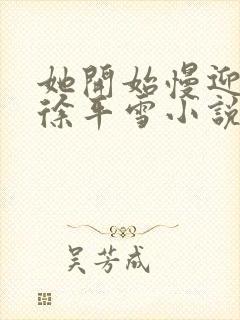 她開始慢迎
徐平雪小說
吴芳成